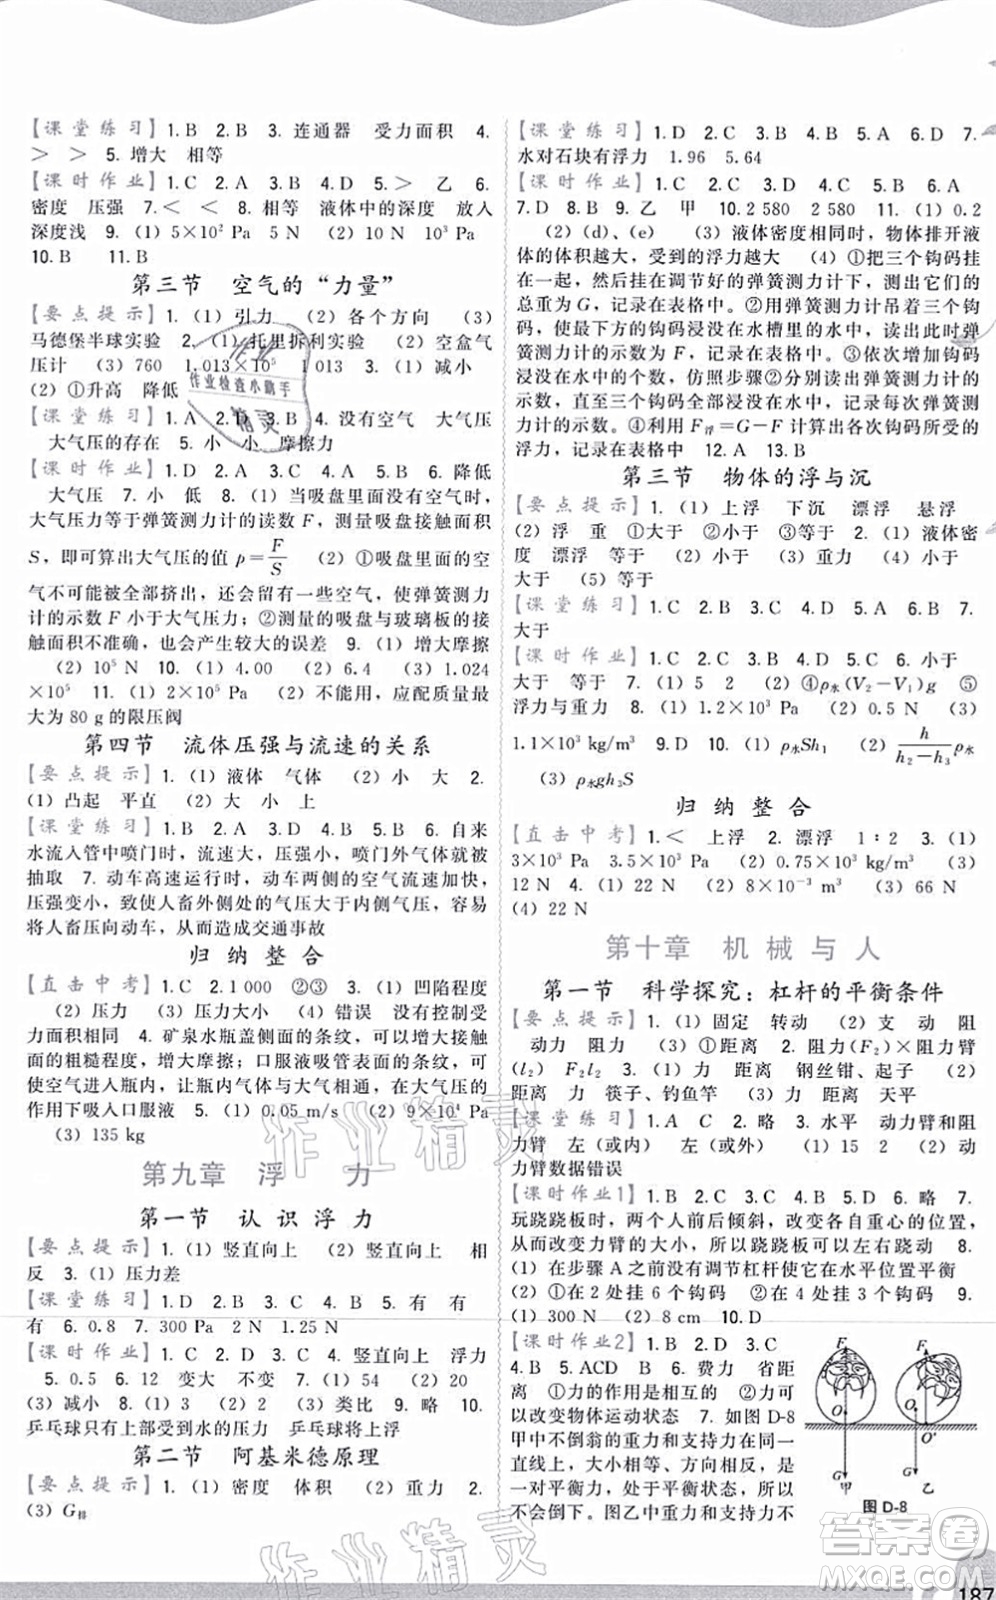 【课堂练习】 1.B 2.B 3.连通器 受力面积 4.
＞ ＞ 5.增大 相等
【课时作业】 1.C 2.A 3.B 4.D 5.＞ 乙 6.
密度 压强 7.＜ ＜ 8.相等 液体中的深度 放入
深度浅 9.（1）5×10² Pa 5 N （2）10 N 10³ Pa
10.B 11.B
第三节 空气的“力量”
【要点提示】 1.（1）引力 （2）各个方向 （3）
马德堡半球实验 2.（1）托里拆利实验 （2）空盒气
压计 （3）760 1.013×10⁵ 1 013 3.（1）减小
（2）①升高 降低
【课堂练习】 1.A 2.D 3.B 4.没有空气 大气压
大气压的存在 5.小 小 摩擦力
【课时作业】 1.D 2.A 3.D 4.D 5.C 6.降低
大气压 7.小 低 8.（1）当吸盘里面没有空气时，
大气压力等于弹簧测力计的读数 F，测量吸盘接触面积
S，即可算出大气压的值 p=F/S （2）①吸盘里面的空
气不可能被全部挤出，还会留有一些空气，使弹簧测力
计的示数 F 小于大气压力；②测量的吸盘与玻璃板的接
触面积偏大，也会产生较大的误差 9.（1）增大摩擦
（2）10⁵ N 10.（1）4.00 （2）6.4 （3）1.024
×10⁵ 11.（1）2×10⁵ Pa （2）不能用，应配质量最
大为 80 g 的限压阀
第四节 流体压强与流速的关系
【要点提示】 1.（1）液体 气体 （2）小 大 2.
（1）凸起 平直 （2）大 小 上
【课堂练习】 1.B 2.A 3.D 4.B 5.B 6.自来
水流入管中喷门时，流速大，压强小，喷门外气体就被
抽取 7.动车高速行驶时，动车两侧的空气流速加快，
压强变小，致使人畜外侧处的气压大于内侧气压，容易
将人畜压向动车，从而造成交通事故
归纳整合
【直击中考】 1.C 2.1 000 ②③ 3.（1）凹陷程度
（2）压力 （3）压强大小 （4）错误 没有控制受
力面积相同 4.矿泉水瓶盖侧面的条纹，可以增大接触
面的粗糙程度，增大摩擦；口服液吸管表面的条纹，可
使空气进入瓶内，让瓶内气体与大气相通，在大气压的
作用下吸入口服液 5.（1）0.05 m/s （2）9×10⁴ Pa
（3）135 kg
第九章 浮 力
第一节 认识浮力
【要点提示】 1.（1）竖直向上 （2）竖直向上 相
反 3.（1）压力差
【课堂练习】 1.D 2.B 3.C 4.B 5.有 有
有 6.0.8 7.300 Pa 2 N 1.25 N
【课时作业】 1.C 2.C 3.A 4.竖直向上 浮力
5.0.5 6.12 变大 不变 7.（1）54 （2）20
（3）减小 8.（1）4 （2）3 （3）类比 9.略 10.
乒乓球只有上部受到水的压力 乒乓球将上浮
第二节 阿基米德原理
【要点提示】 1.（1）密度 体积 （2）重力 2.
（3）G排
【课堂练习】 1.D 2.C 3.B 4.B 5.A 6.D 7.
水对石块有浮力 1.96 5.64
【课时作业】 1.C 2.B 3.D 4.B 5.C 6.A
7.D 8.B 9.乙 甲 10.2 580 2 580 11.（1）0.2
（2）（d）、（e） （3）液体密度相同时，物体排开液
体的体积越大，受到的浮力越大 （4）①将三个钩码挂
在一起，然后挂在调节好的弹簧测力计下，测出它们的
总重为 G，记录在表格中。②用弹簧测力计吊着三个钩
码，使最下方的钩码浸没在水槽里的水中，读出此时弹
簧测力计的示数 F，记录在表格中。③依次增加钩码
浸没在水中的个数，仿照步骤②的方法，直到三个钩码分别
浸没在水中，直至三个钩码全部浸没在水中，读出弹簧测力
计的示数。④利用 F浮=G－F 计算出各次钩码所受的
浮力，记录在表格中 12.A 13.B
第三节 物体的浮与沉
【要点提示】 1.（1）上浮 下沉 漂浮 悬浮
（2）浮 重 ①大于 ②小于 ③等于 2.（1）液体密
度 漂浮 等于 （2）小于 （3）重力 （4）小于
大于 （5）等于
【课堂练习】 1.C 2.B 3.C 4.A 5.B 6.B 7.
大于
【课时作业】 1.C 2.B 3.A 4.D 5.C 6.小于
大于 等于 7.（1）5 2 （2）④ρ水（V₂－V₁）g ⑤
浮力与重力 8.（1）1.2×10³ Pa （2）0.5 N （3）
1.1×10³ kg/m³ 9.D 10.（1）ρ水Sh₁ （2）h/(h₂－h₃)ρ水
（3）ρ水gh₃S
归纳整合
【直击中考】 1.＜ 上浮 2.漂浮 1∶2 3.（1）
3×10³ Pa 3.5×10³ Pa （2）0.75×10³ kg/m³ （3）
12 N 4.（1）22 N （2）8×10⁻³ m³ （3）66 N
（4）22 N
第十章 机械与人
第一节 科学探究：杠杆的平衡条件
【要点提示】 1.（1）固定 转动 （2）支 动 阻
动力 阻力 （3）①距离 2.阻力（F₂）×阻力臂
（l₂） F₂l₂ 3.（1）力 距离 钢丝钳、起子 （2）
距离 力 筷子、钓鱼竿 （3）力 距离 天平
【课堂练习】 1.A C 2.略 3.水平 动力臂和阻
力臂 左（或内） 左（或外） 4.（1）1 （2）2 阻
力臂数据错误
【课时作业1】 1.B 2.D 3.B 4.A 5.C 6.略 7.
玩跷跷板时，两个人前后倾斜，改变各自重心的位置，
从而改变力臂的大小，所以跷跷板可左右跷动 8.
（1）在步骤 A 之前没有调节杠杆使它在水平位置平衡
（2）①在 2 处挂 6 个钩码 ②在 4 处挂 3 个钩码 9.
（1）300 N （2）8 cm 10.D
【课时作业2】 1.B 2.D 3.C
4.B 5.ACD B 6.费力 省距
离 ①力的作用是相互的 ②力可
以改变物体运动状态 7.如图 D-8
甲中不倒翁的重力和支持力在同一
直线上，处于平衡状态，所以
不会倒下。图乙中重力和支持力不
图 D-8
甲 乙
作业检查小助手
精灵
作业精灵
作业精灵
答案圈
MXQE.COM
187